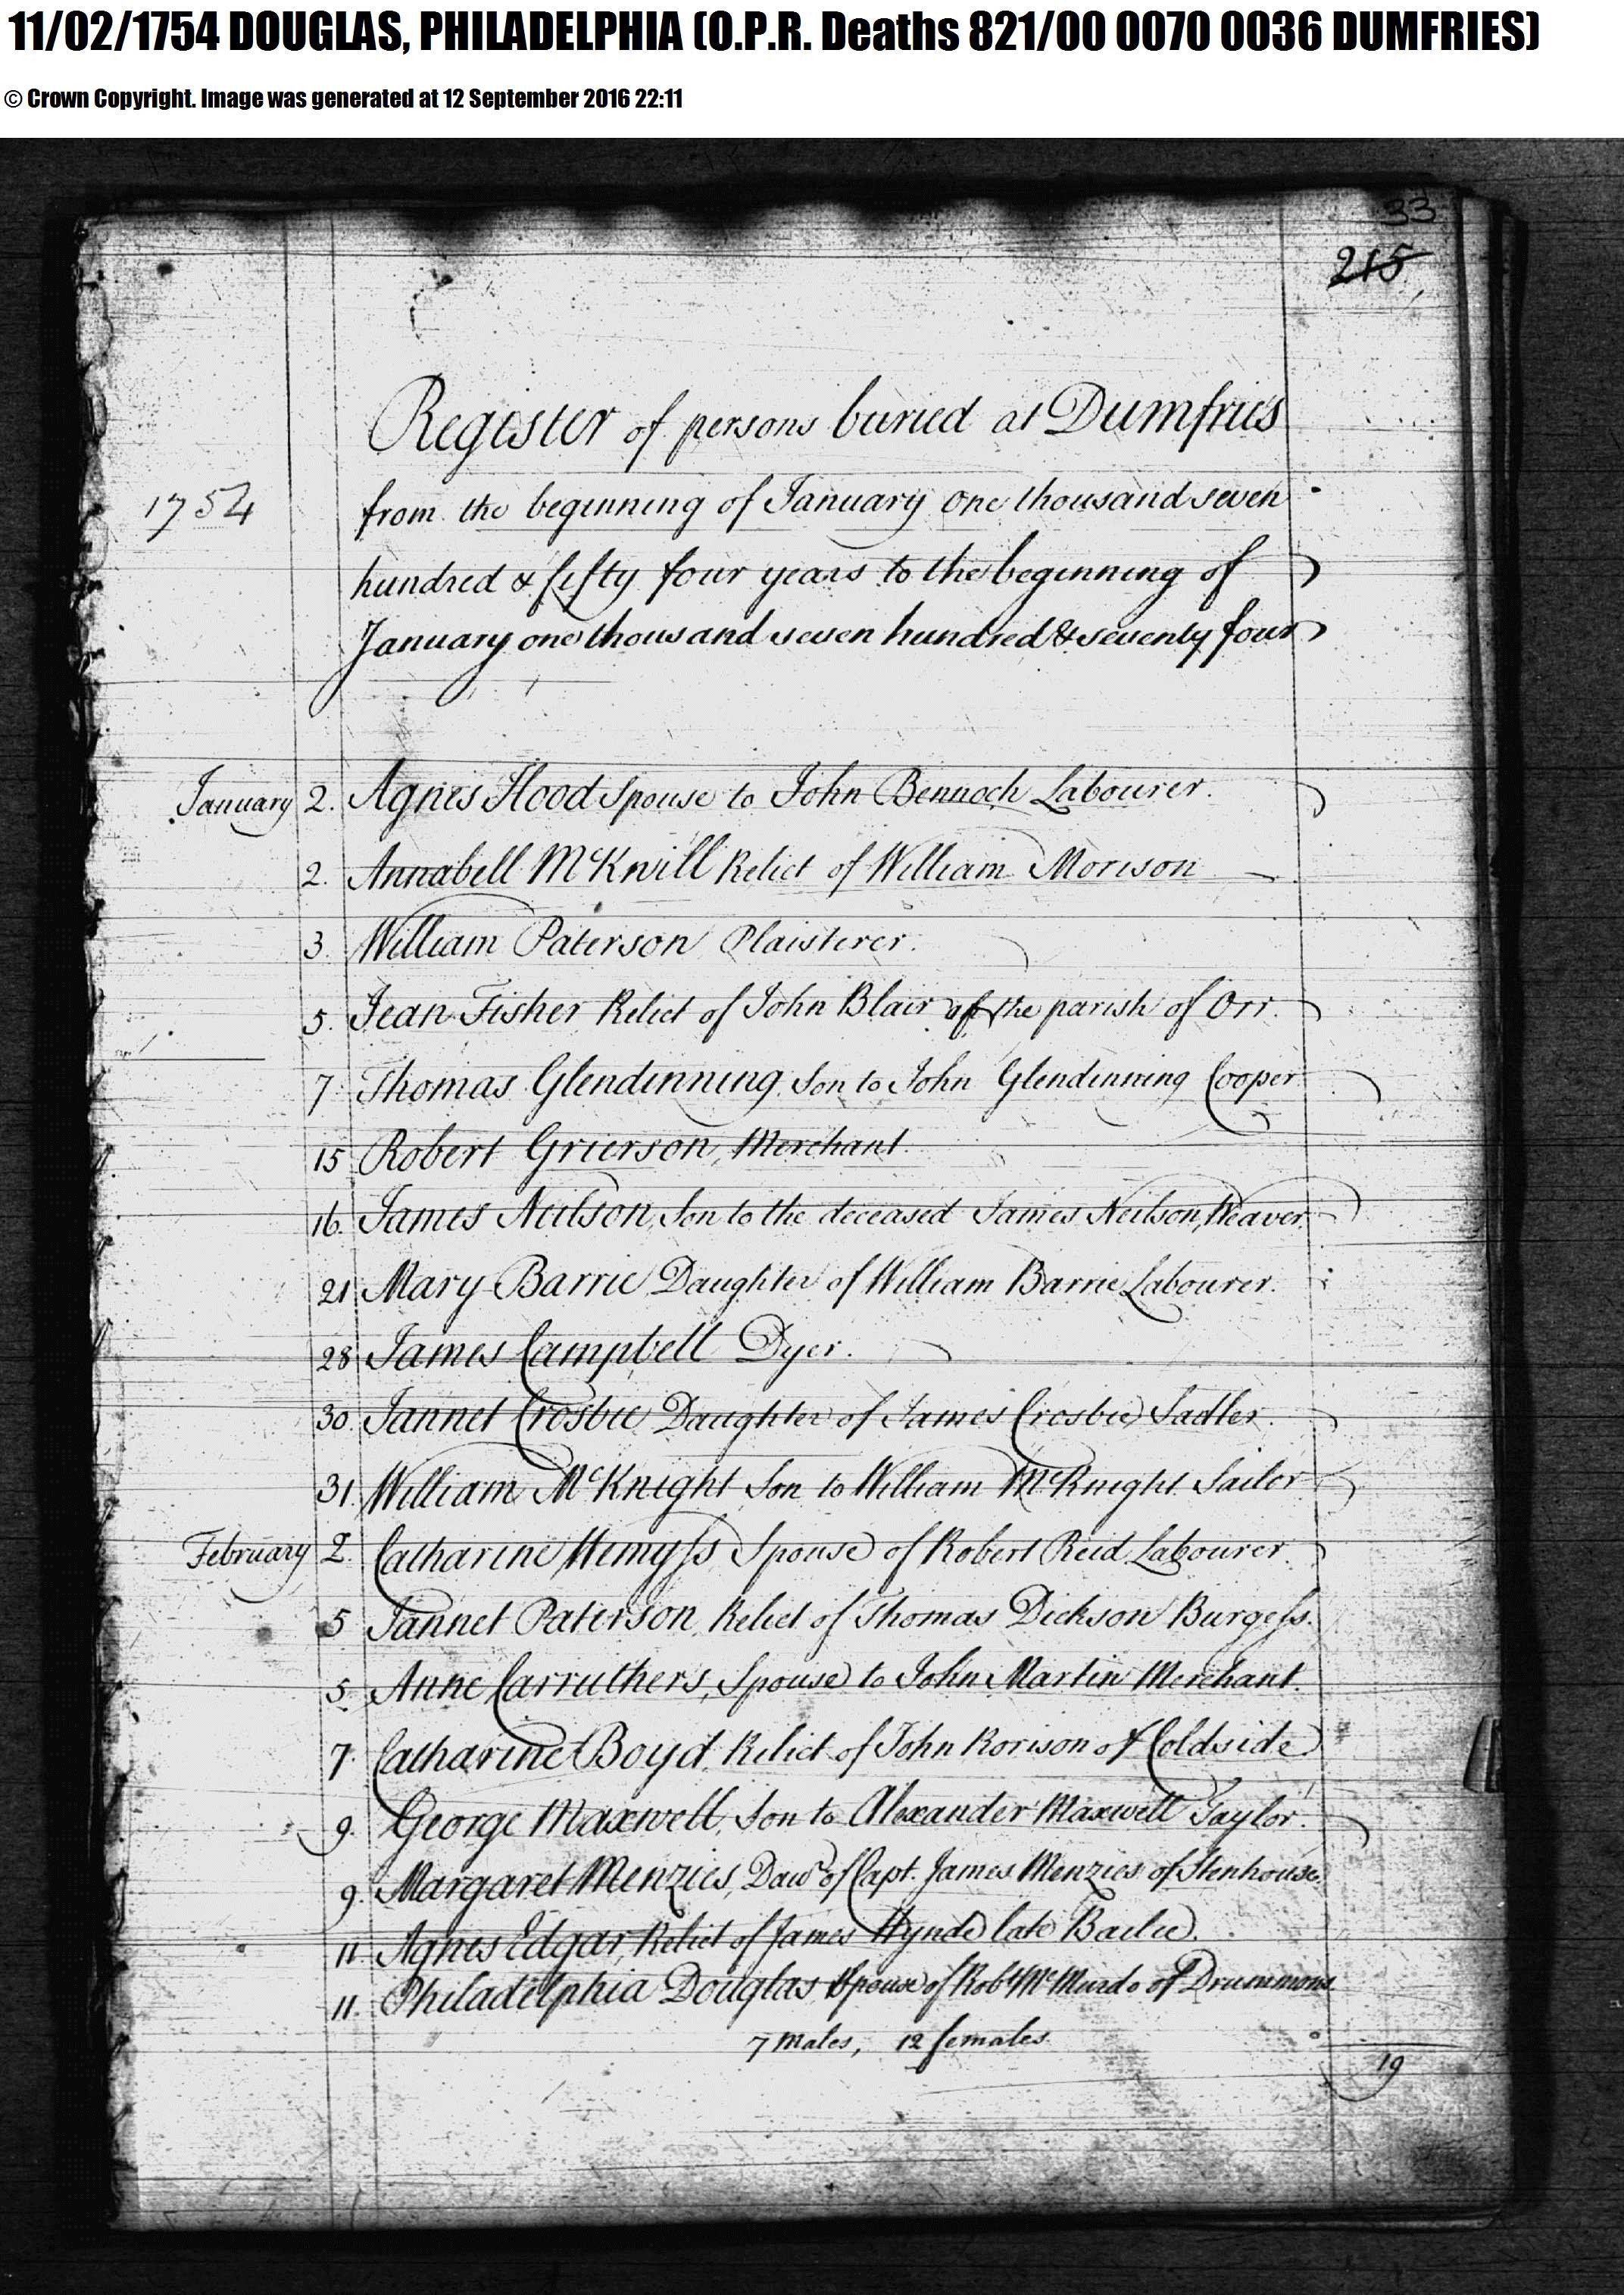 11/02/1754 DOUGLAS, PHILADELPHIA (O.P.R. Deaths 821/00 0070 0036 DUMFRIES)
© Crown Copyright. Image was generated at 12 September 2016 22:11
33
215
Register of persons buried at Dumfries
1754 from the beginning of January one thousand seven
hundred & fifty four years to the beginning of
January one thousand seven hundred & seventy four
January 2. Agnes Hood Spouse to John Bennoch Labourer.
2. Annabell McKnill Relict of William Morison
3. William Paterson Plaisterer.
5. Jean Fisher Relict of John Blair of the parish of Orr.
7. Thomas Glendinning Son to John Glendinning Cooper
15 Robert Grierson, Merchant.
16. James Neilson, Son to the deceased James Neilson, Weaver.
21 Mary Barrie Daughter of William Barrie Labourer.
28 James Campbell Dyer.
30. Jannet Crosbie Daughter of James Crosbie Sadler.
31. William McKnight Son to William McKnight Sailor
February 2. Catharine Wemyss Spouse of Robert Reid Labourer.
5 Jannet Paterson Relict of Thomas Dickson Burgess.
5. Anne Carruthers, Spouse to John Martin Merchant.
7. Catharine Boyd, Relict of John Rorison of Coldside
9. George Maxwell, Son to Alexander Maxwell Taylor.
9. Margaret Menzies, Dawr of Capt. James Menzies of Stenhouse.
11. Agnes Edgar, Relict of James Hynde late Bailie.
11. Philadelphia Douglas Spouse of Robt McMurdo of Drummons
7 Males, 12 females.
19